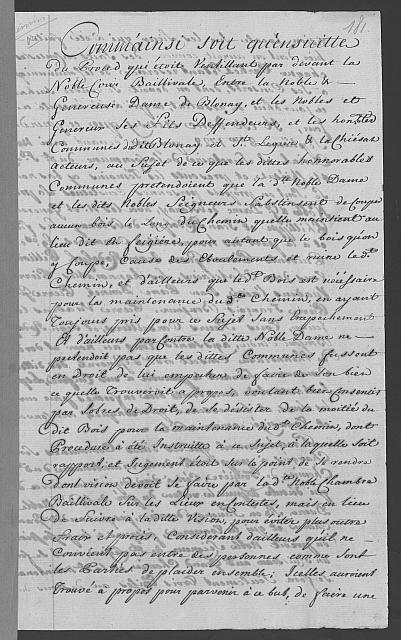 181.
Comme ainsi soit qu'ensuitte
Du Procéd qui étoit Ventillant par devant la
Noble Cour Baillivale Entre la Noble &
Genereuse Dame de Blonay, et les Nobles et
Genereux ses Fils Deffendeurs, et les honnbles
Communes de Blonay et St. Legier & la Chiésaz
acteurs, au Sujet de ce que les dittes honnorables
Communes pretendoient que la dte Noble Dame
et les dits Nobles Seigneurs S'abstensent de Couper
aucun bois le Long du Chemin quelle maintient au
lieu dit En feigière, pour autant que le bois quon
y Coupe, Cause des Eboulements et ruine led.
Chemin, et d'ailleurs que led. Bois est nécéssaire
pour la maintenance dud. Chemin, en ayant
Toujours pris pour ce Sujet Sans Empechement
Et d'ailleurs par Contre la ditte Noble Dame ne
pretendoit pas que les dittes Communes fussent
en Droit de lui empecher de faire de Son bien
ce quelle Trouveroit a propos, voulant bien Consentir
par Soldes de Droit, de se désister de la moitié du
dit Bois pour la maintenance dud. Chemin, dont
Procedure à été Instruitte à ce Sujet, à laquelle soit
rapport, et Jugement étoit Sur le point de Se rendre
dont vision devoit se faire par la dte Noble Chambre
Baillivale Sur les Lieux en Contestes, mais au lieu
de Suivre à la ditte Vision, pour eviter plus outre
Fraix et procès, Considerant d'ailleurs quil ne
Convient pas entre des personnes comme sont
les Parties de plaider ensemble; Icelles auroient
Trouvé à propos pour parvenir à ce but, de faire une